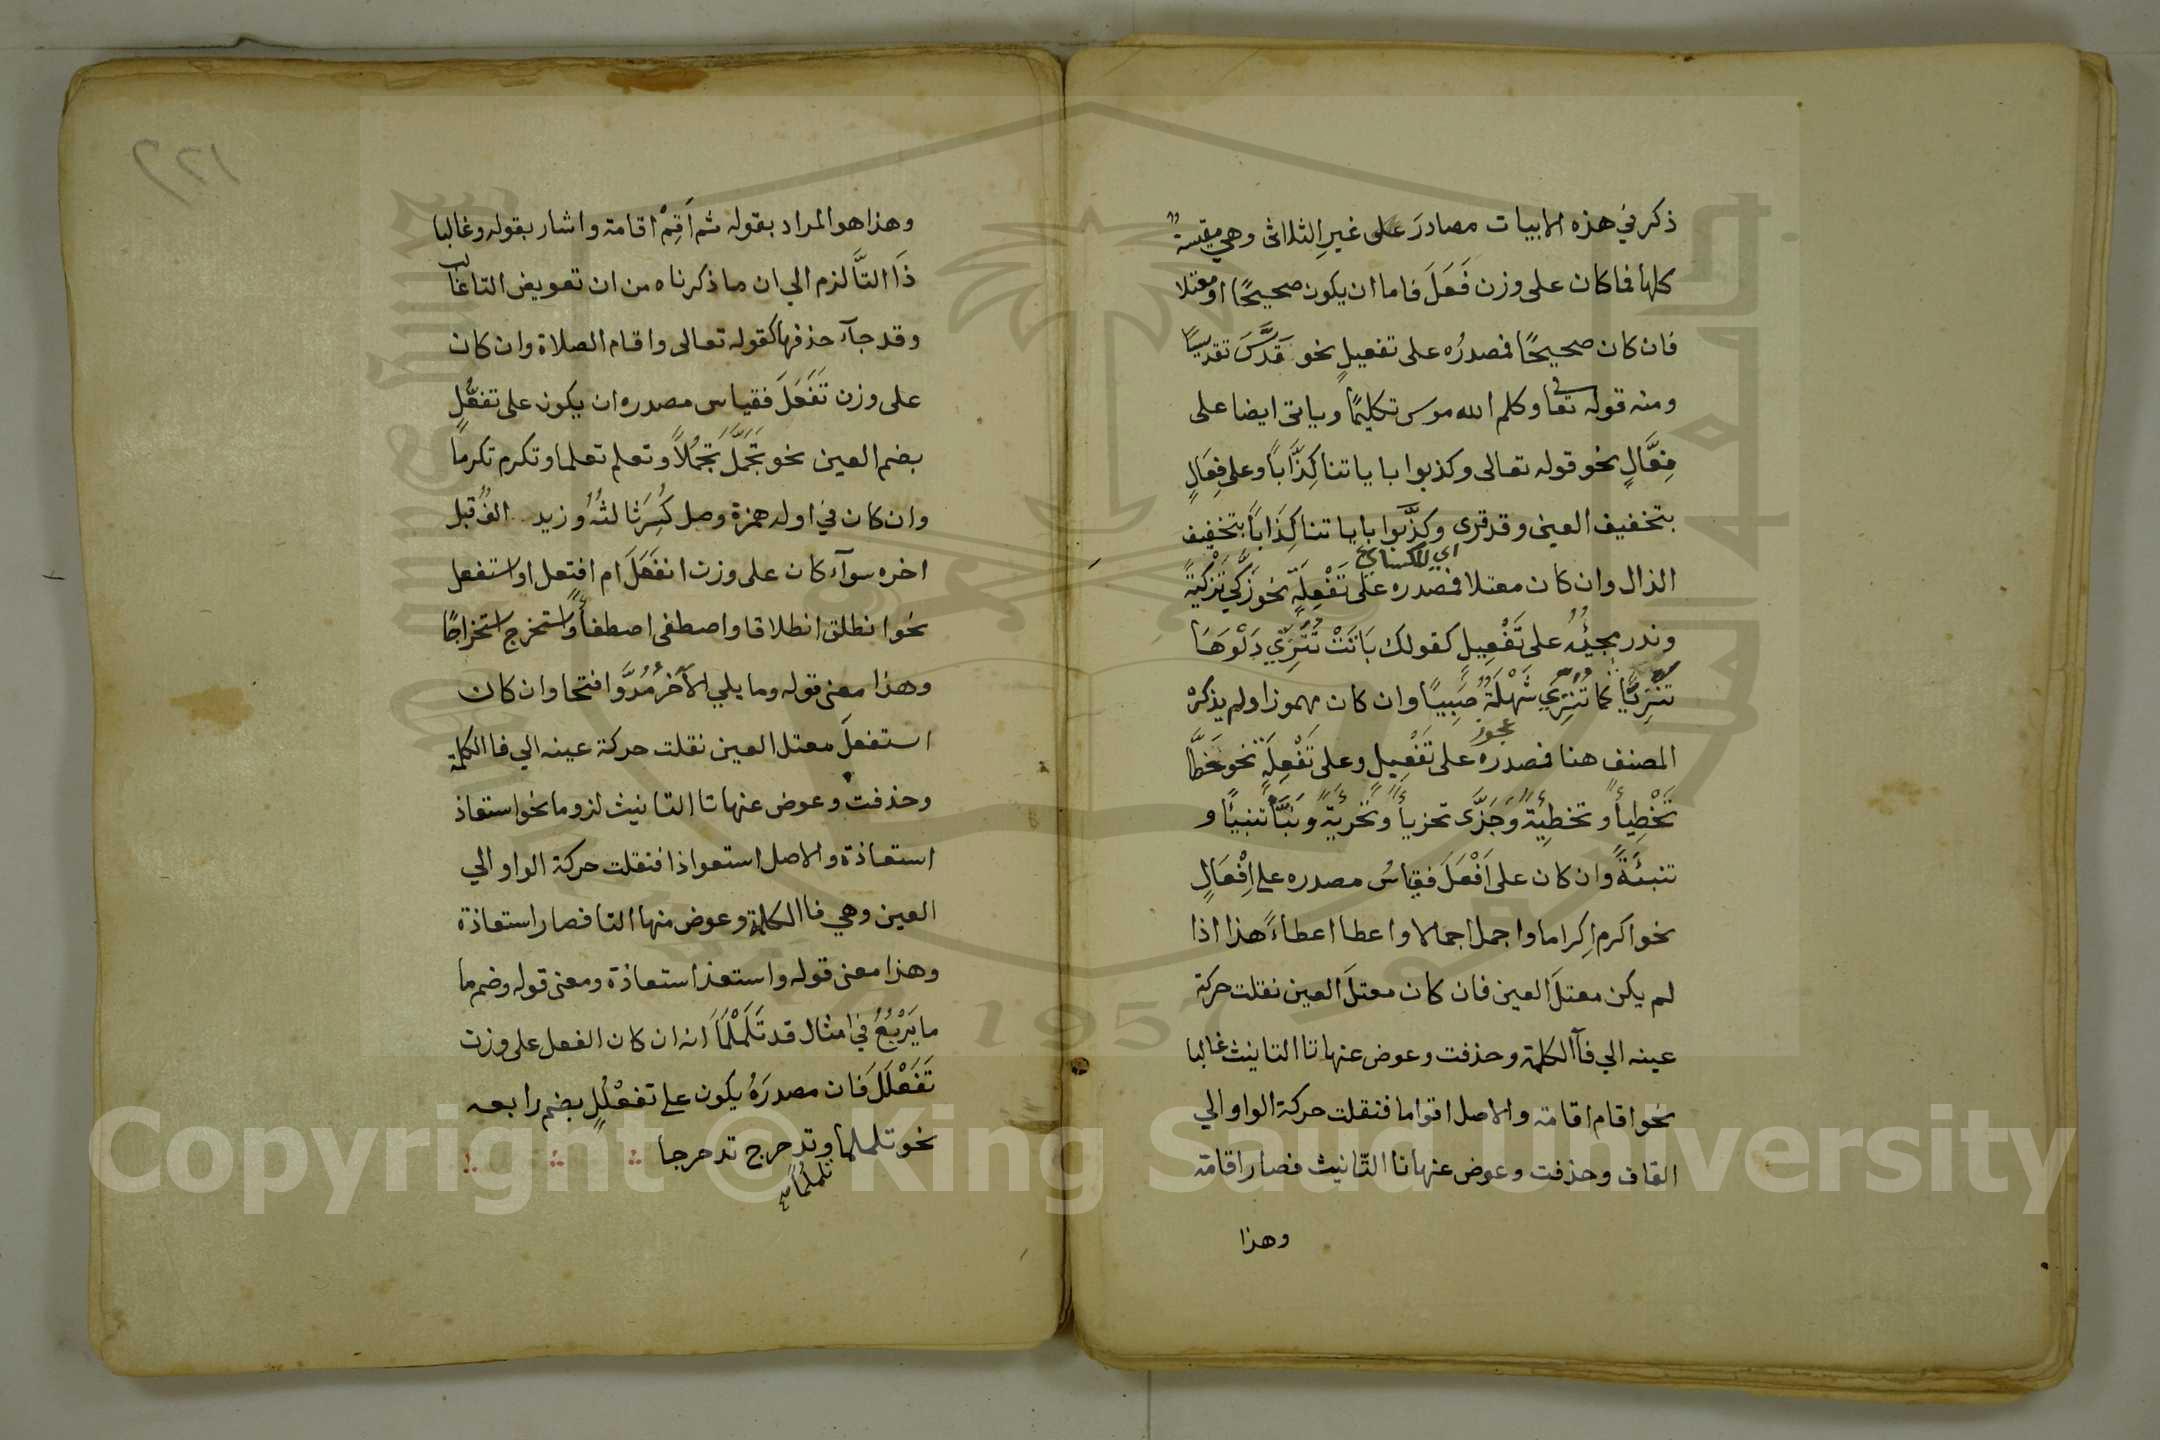 ذكر في هذه الابيات مصادرَ على غيرِ الثلاثى وهي مقيسة
كلها فما كان على وزن فَعَّلَ فاما ان يكون صحيحًا او معتلا
فان كان صحيحًا فمصدرُه على تفعيلٍ نحو قدَّسَ تقديسًا
ومنه قوله تعا وكلم الله موسى تكليمًا وياتى ايضا على
فِعَّالٍ نحو قوله تعالى وكذبوا باياتنا كِذَّابًا وعلى فِعَالٍ
بتخفيف العين وقد قرى وكذَّبوا باياتنا كِذَابًا بتخفيف
اى للكسائي
الذال وان كان معتلا فمصدره على تَفْعِلَةٍ نحو زَكَّي تَزْكِيَةً
وندر مجيئُهُ على تَفْعِيلٍ كقولك بَاتَتْ تُنَزِّي دَلْوَهَا
تَنْزِيًّا كما تُنَزِّي شَهْلَةٌ صَبِيًّا وان كان مهموزا ولم يذكره
عجوز
المصنف هنا فمصدره على تَفْعِيلٍ وعلى تَفْعِلَةٍ نحو خَطَّأ
تَخْطِيأً وتخطِيَةً وَجَزَّى تجزيأً وتجزيَةً ونَبَّأ تنبيًا و
تنبئَةً وان كان على اَفْعَلَ فقياسُ مصدره على اِفْعَالٍ
نحو اكرم اِكراما واجمل اجمالا واعطا اعطاءً هذا اذا
لم يكن معتلَ العين فان كان معتلَ العين نقلت حركة
عينه الي فآ الكلمة وحذفت وعوض عنها تا التانيث غالبا
نحو اقام اقامة والاصل اقواما فنقلت حركة الواو الي
القاف وحذفت وعوض عنها تا التانيث فصار اقامة
وهذا
١٢٢
وهذا هو المراد بقوله ثم اَقِمْ اقامة واشار بقوله وغالبا
ذَا التَّا لزم الي ان ما ذكرناه من ان تعويض التا غالب
وقد جآء حذفها كقوله تعالى واقام الصلاة وان كان
على وزن تَفَعَّلَ فقياس مصدره ان يكون على تفعُّلٍ
بضم العين نحو تَجَمَّلَ تَجَمُّلاً وتعلم تعلما وتكرم تكرما
وان كان في اوله همزة وصل كُسِرَ ثالثُهُ وزيد الفٌ قبل
اخره سوآء كان على وزن انفَعَلَ ام افتعل او استفعل
نحو انطلق انطلاقا واصطفى اصطفاً واستخرج استخراجًا
وهذا معنى قوله وما يلي الآخرُ مُدَّ وافتحا وان كان
استفعلَ معتل العين نقلت حركة عينه الي فا الكلمة
وحذفت وعوض عنها تا التانيث لزوما نحو استعاذ
استعاذة والاصل استعواذا فنقلت حركة الواو الي
العين وهي فا الكلمة وعوض منها التا فصار استعاذة
وهذا معنى قوله واستعذ استعاذة ومعنى قوله وضم ما
ما يَرْبُعُ في امثال قد تَلَمْلَمَا انه ان كان الفعل على وزن
تَفَعْلَلَ فان مصدرَهُ يكون على تفعْلُلٍ بضم رابعه
نحو تلملما وتدحرج تدحرجا
تلملُماً
Copyright © King Saud University
1957